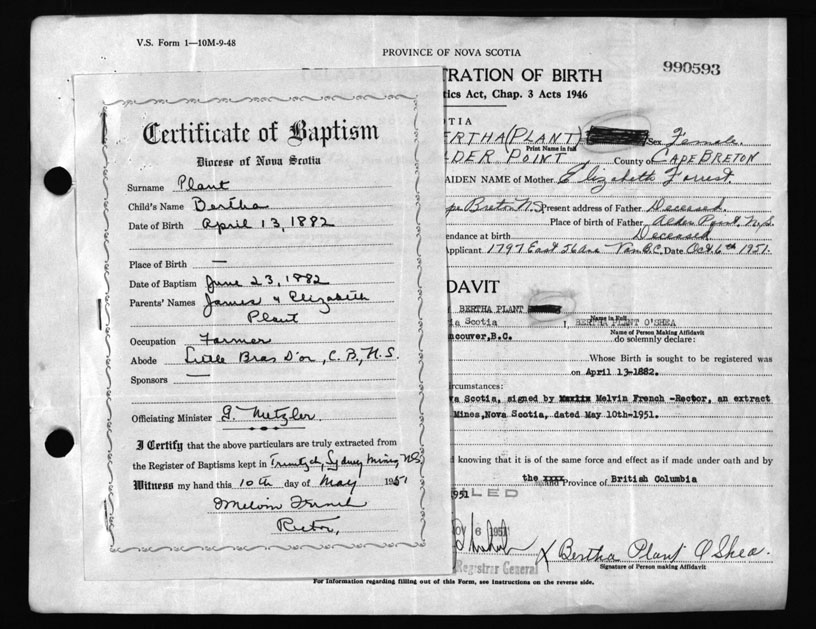 V.S. Form 1—10M-9-48
PROVINCE OF NOVA SCOTIA
990593
TRATION OF BIRTH
tics Act, Chap. 3 Acts 1946
Certificate of Baptism
Diocese of Nova Scotia
Surname Plant
Child's Name Bertha
Date of Birth April 13, 1882
Place of Birth —
Date of Baptism June 23, 1882
Parents' Names James & Elizabeth
Plant
Occupation Farmer
Abode Little Bras D'or, C.B., N.S.
Sponsors —
Officiating Minister G. Metzler.
I Certify that the above particulars are truly extracted from
the Register of Baptisms kept in Trinity Ch, Sydney Mines, N.S.
Witness my hand this 10th day of May 1951
Melvin French
Rector,
OTIA
ERTHA (PLANT) Sex Female
Print Name in full
LDER POINT County of CAPE BRETON
AIDEN NAME of Mother Elizabeth Forrest.
pe Breton N.S Present address of Father Deceased.
Place of birth of Father Alder Point, N.S.
endance at birth Deceased
pplicant 1797 East 56 Ave Van B.C. Date Oct. 6th 1951.
DAVIT
BERTHA PLANT
ia Scotia I, BERTHA PLANT O'SHEA
Name in Full
Name of Person Making Affidavit
ncouver, B.C. do solemnly declare:
Whose Birth is sought to be registered was
on April 13-1882.
ircumstances:
va Scotia, signed by Melvin French -Rector, an extract
Mines, Nova Scotia, dated May 10th-1951.
d knowing that it is of the same force and effect as if made under oath and by
the xxxx Province of British Columbia
1951 LED
OV 6 1951
Registrar General
X Bertha Plant O'Shea.
Signature of Person making Affidavit
For information regarding filling out of this Form, see Instructions on the reverse side.